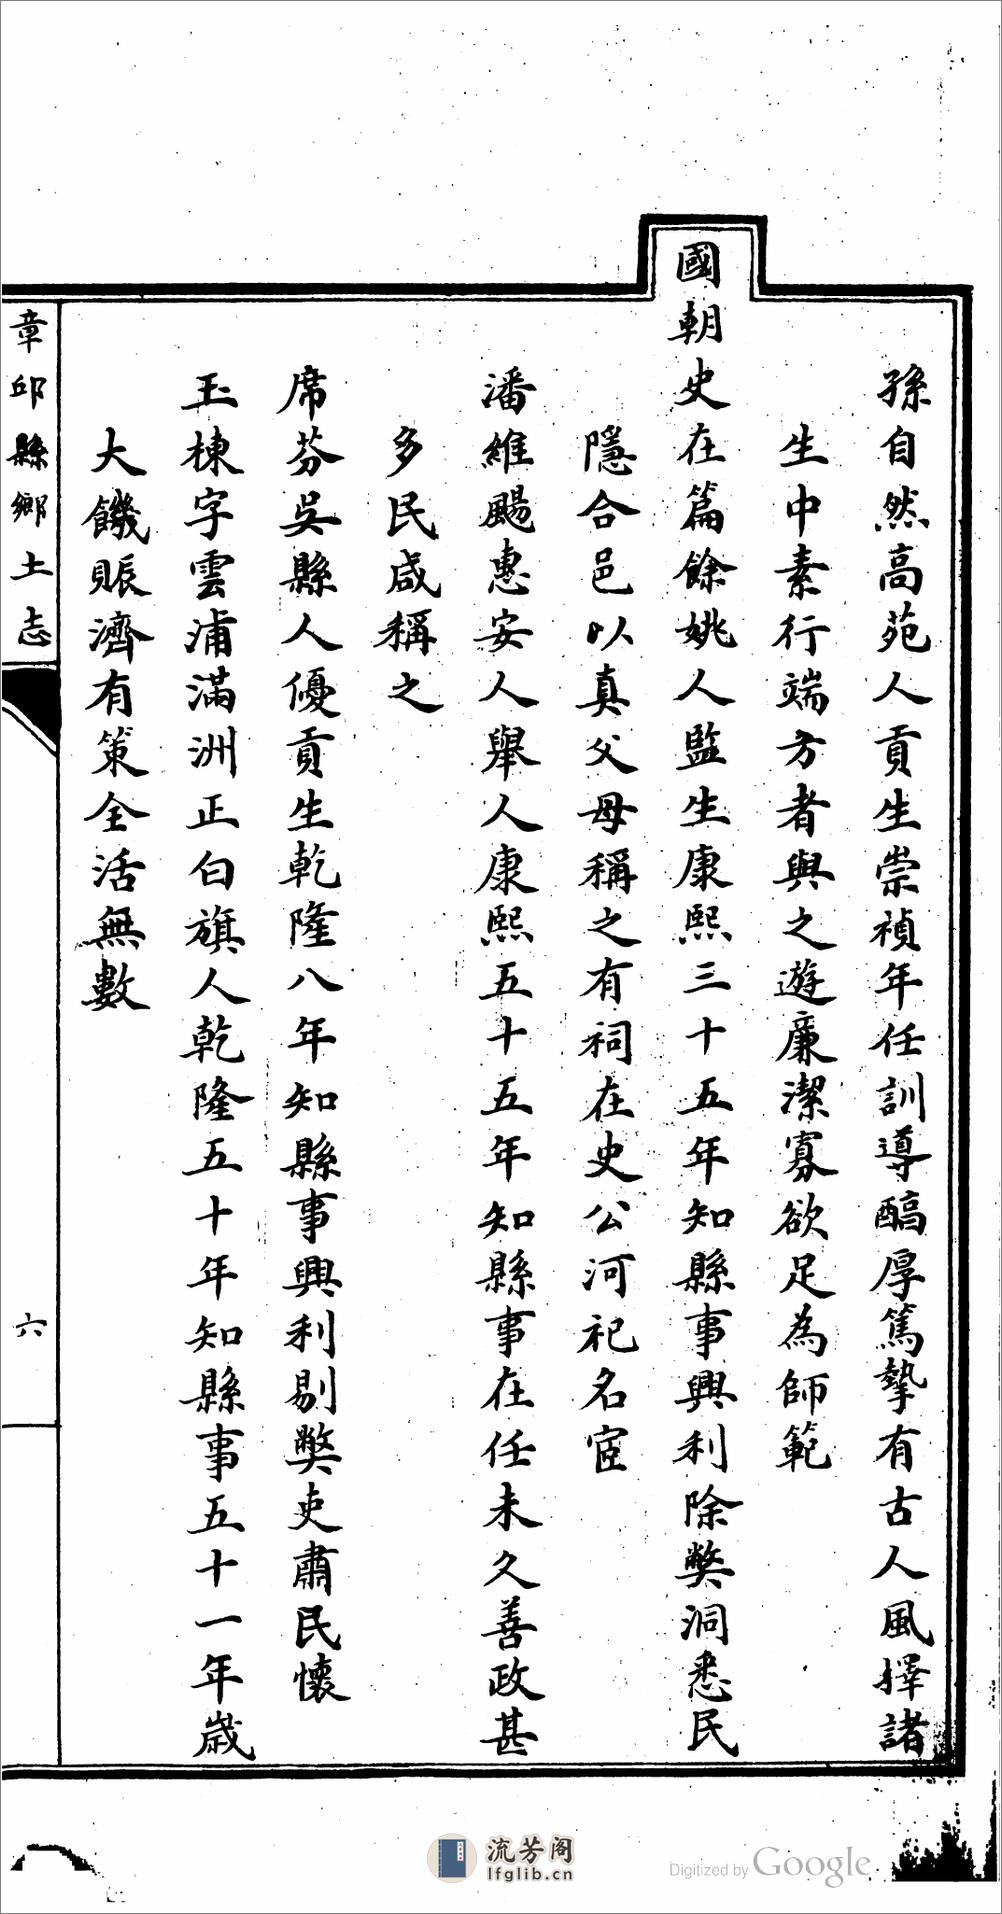 孫自然高苑人貢生崇禎年任訓導醕厚篤摯有古人風擇諸
生中素行端方者與之遊廉潔寡欲足為師範
國朝史在篇餘姚人監生康熙三十五年知縣事興利除弊洞悉民
隱合邑以真父母稱之有祠在史公河祀名宦
潘維颺惠安人舉人康熙五十五年知縣事在任未久善政甚
多民咸稱之
席芬吳縣人優貢生乾隆八年知縣事興利剔弊吏肅民懷
玉棟字雲浦滿洲正白旗人乾隆五十年知縣事五十一年歲
大饑賑濟有策全活無數
章邱縣鄉土志
六
流芳阁
lfglib.cn
Digitized by Google